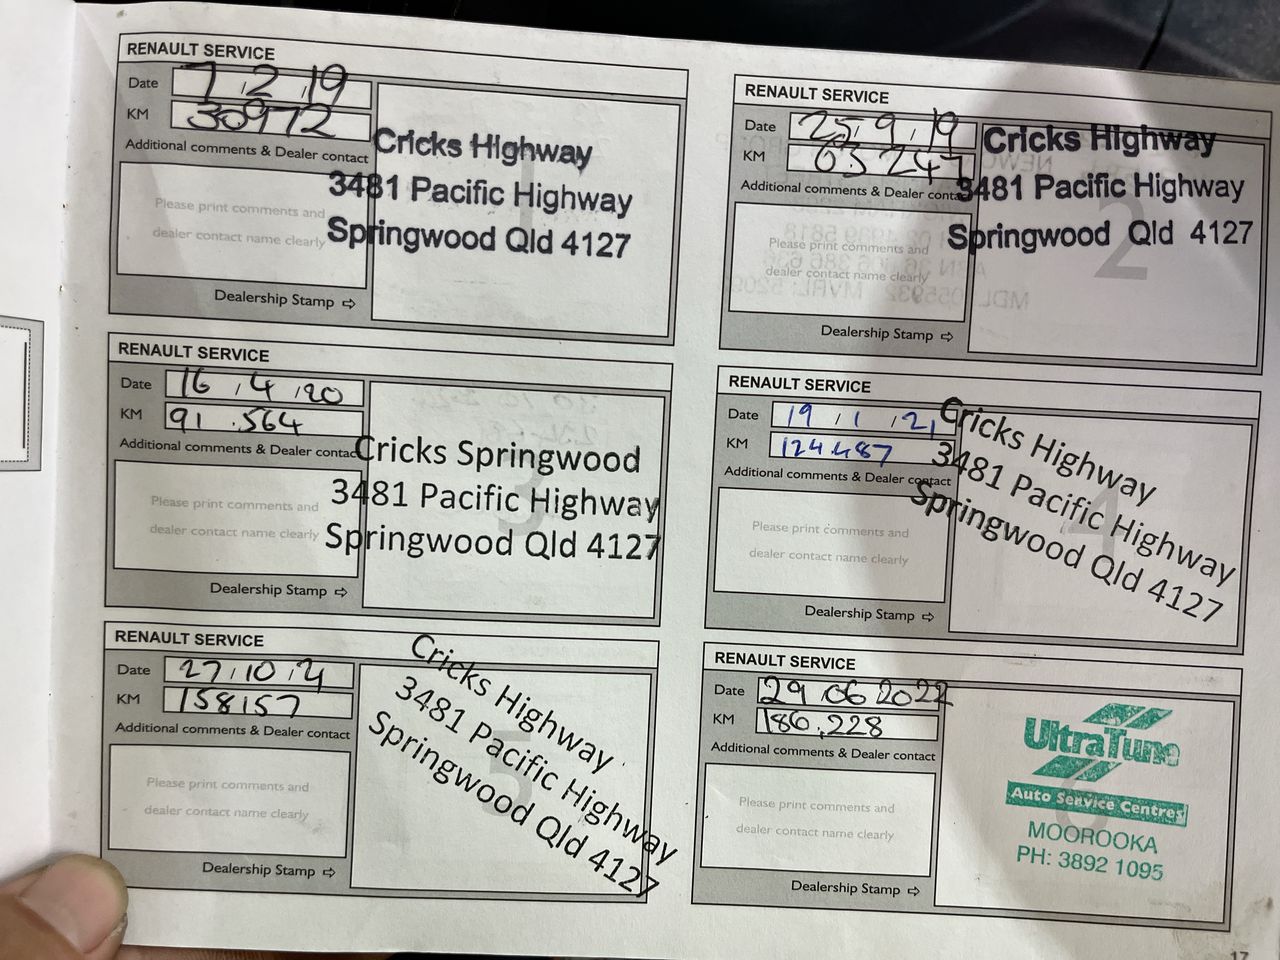 RENAULT SERVICE
Date 7 , 2 , 19
KM 30972
Additional comments & Dealer contact
Please print comments and
dealer contact name clearly
Dealership Stamp ⇨
Cricks Highway
3481 Pacific Highway
Springwood Qld 4127
RENAULT SERVICE
Date 25 , 9 , 19
KM 63 247
Additional comments & Dealer contact
Please print comments and
dealer contact name clearly
Dealership Stamp ⇨
Cricks Highway
3481 Pacific Highway
Springwood Qld 4127
2
RENAULT SERVICE
Date 16 , 4 , 20
KM 91 .564
Additional comments & Dealer contact
Please print comments and
dealer contact name clearly
Dealership Stamp ⇨
Cricks Springwood
3481 Pacific Highway
Springwood Qld 4127
3
RENAULT SERVICE
Date 19 , 1 , 21
KM 124487
Additional comments & Dealer contact
Please print comments and
dealer contact name clearly
Dealership Stamp ⇨
Cricks Highway
3481 Pacific Highway
Springwood Qld 4127
4
RENAULT SERVICE
Date 27 , 10 , 21
KM 158157
Additional comments & Dealer contact
Please print comments and
dealer contact name clearly
Dealership Stamp ⇨
Cricks Highway
3481 Pacific Highway
Springwood Qld 4127
5
RENAULT SERVICE
Date 29 06 2022
KM 186,228
Additional comments & Dealer contact
Please print comments and
dealer contact name clearly
Dealership Stamp ⇨
UltraTune
Auto Service Centres
MOOROOKA
PH: 3892 1095
17